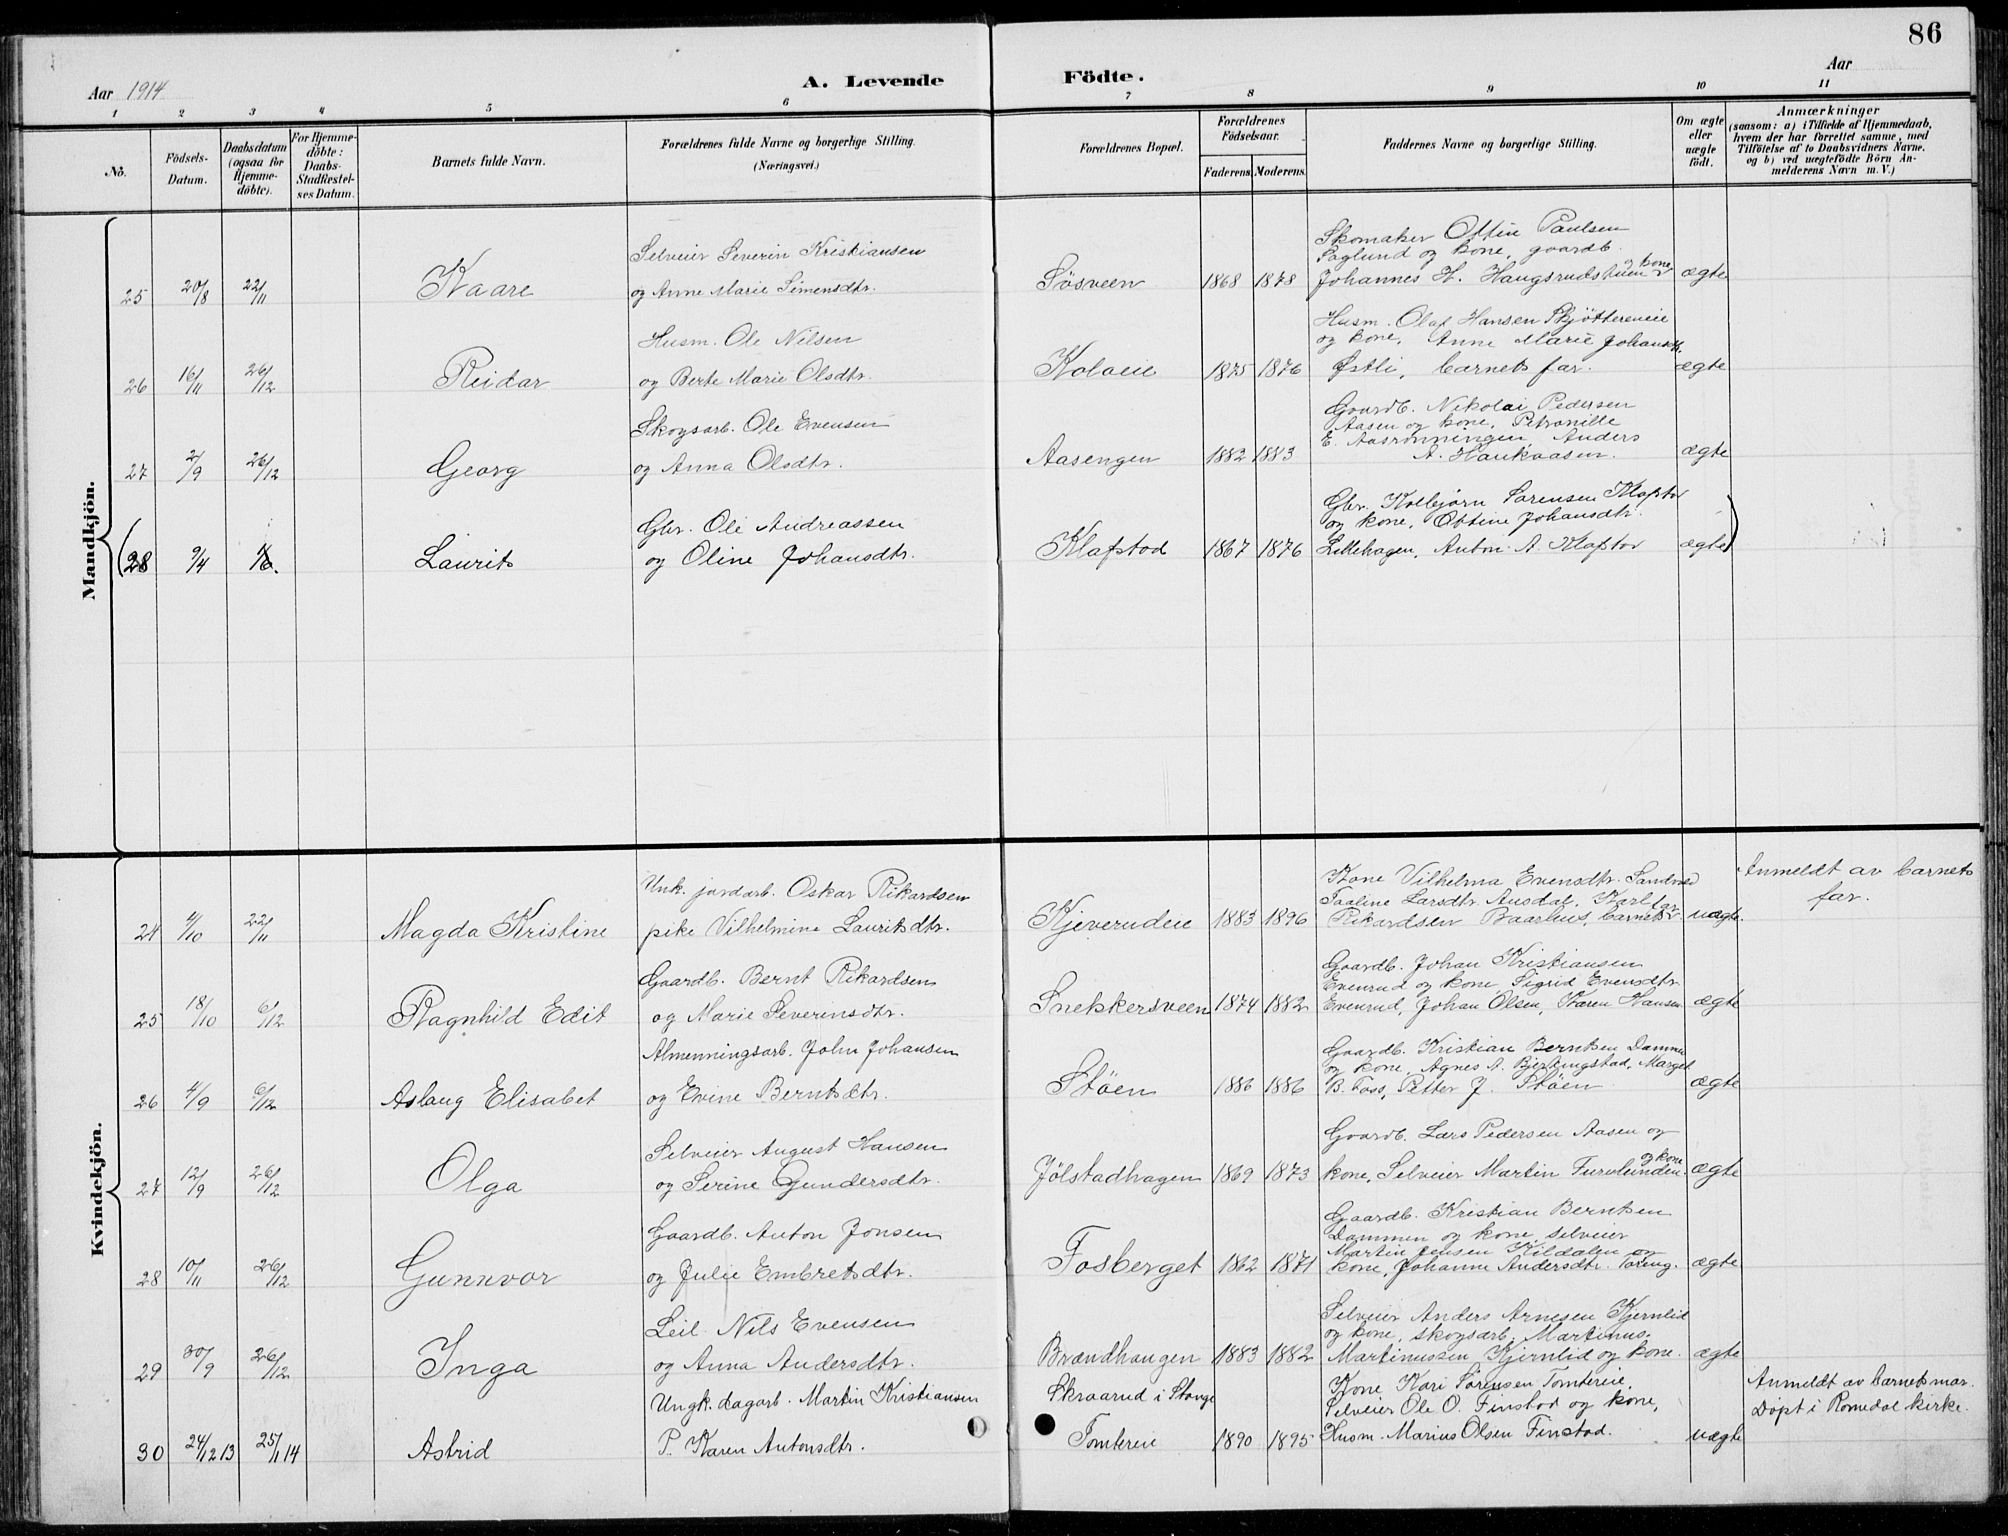 86
Aar 1914
A. Levende Födte.
Aar
1 2 3 4 5 6 7 8 9 10 11
No.
Födsels-Datum.
Daabsdatum (ogsaa for Hjemme-döbte).
For Hjemme-döbte: Daabs-Stadfæstel-ses Datum.
Barnets fulde Navn.
Forældrenes fulde Navne og borgerlige Stilling. (Næringsvei.)
Forældrenes Bopæl.
Forældrenes Födselsaar.
Faderens. Moderens.
Faddernes Navne og borgerlige Stilling.
Om ægte eller uægte födt.
Anmærkninger
(saasom: a) i Tilfælde af Hjemmedaab,
hvem der har forrettet samme, med
Tilföielse af to Daabsvidners Navne.
og b) ved uægtefödte Börn An-
melderens Navn m. V.)
Mandkjön.
Selveier Severin Kristiansen
Skomaker Ottin Paulsen
Saglund og kone, gaardb.
25 20/8 22/11 Kaare og Anne Marie Simensdtr. Søsveen 1868 1878 Johannes H. Haugsrudstuen og kone ægte
Husm. Ole Nilsen
Husm. Olaf Hansen Skjøttereneie
og kone, Anne Marie Johansdtr.
26 16/11 26/12 Reidar og Berte Marie Olsdtr. Kolveie 1875 1876 Østli, barnets far. ægte
Skogsarb. Ole Evensen
Gaardb. Nikolai Pedersen
Aasen og kone, Petronille
E. Aasrønningen, Anders
27 2/9 26/12 Georg og Anna Olsdtr. Aasengen 1882 1883 A. Haukaasen. ægte
Gbr. Ole Andreassen
Gbr. Kolbjørn Sørensen Klafstad
og kone, Ottine Johansdtr.
(28 9/4 1/6. Laurits og Oline Johansdtr. Klafstad 1867 1876 Lillehagen, Anton A. Klafstad ægte)
Kvindekjön.
Unk. jordarb. Oskar Rikardsen
Kone Vilhelma Evensdtr. Sandved
Taaline Larsdtr. Ausdal, Karl
Anmeldt av barnets
far.
24 4/10 22/11 Magda Kristine pike Vilhelmine Lauritsdtr. Kjeverudeie 1883 1896 Rikardsen Baarhus, barnets far uægte.
Gaardb. Bernt Rikardsen
Gaardb. Johan Kristiansen
Evenrud og kone, Sigrid Evensdtr.
25 18/10 6/12 Ragnhild Edit og Marie Severinsdtr. Snekkersveen 1874 1882 Evenrud, Johan Olsen, Karen Hansen ægte
Almenningsarb. John Johansen
Gaardb. Kristian Berntsen Dammen
og kone, Agnes A. Bjerkingstad, Marget
26 4/9 6/12 Aslaug Elisabet og Evine Berntsdtr. Støen 1886 1886 B. Foss, Petter J. Støen ægte
Selveier August Hansen
Gaardb. Lars Pedersen Aasen og
27 12/9 26/12 Olga og Serine Gundersdtr. Jølstadhagen 1869 1873 kone, Selveier Martin Furulunden og kone. ægte
Gaardb. Anton Jonsen
Gaardb. Kristian Berntsen
Dammen og kone, selveier
Martin Jensen Kildalen og
28 10/11 26/12 Gunnvor og Julie Embretsdtr. Fosberget 1862 1871 kone, Johanne Andersdtr. Toreng. ægte
Leil. Nils Evensen
Selveier Anders Arnesen Kjernlid
og kone, skogsarb. Martinus
29 30/9 26/12 Inga og Anna Andersdtr. Brændhaugen 1883 1882 Martinussen Kjernlid og kone. ægte
Ungk. dagarb. Martin Kristiansen
Skraarud i Stange
Kone Kari Sørensen Tomtereie,
Selveier Ole O. Finstad og kone,
Anmeldt av barnets mor.
Døpt i Romedal kirke.
30 24/12 13 25/1 14 Astrid P. Karen Antonsdtr. Tomtereie 1890 1895 Husm. Marius Olsen Finstad. uægte